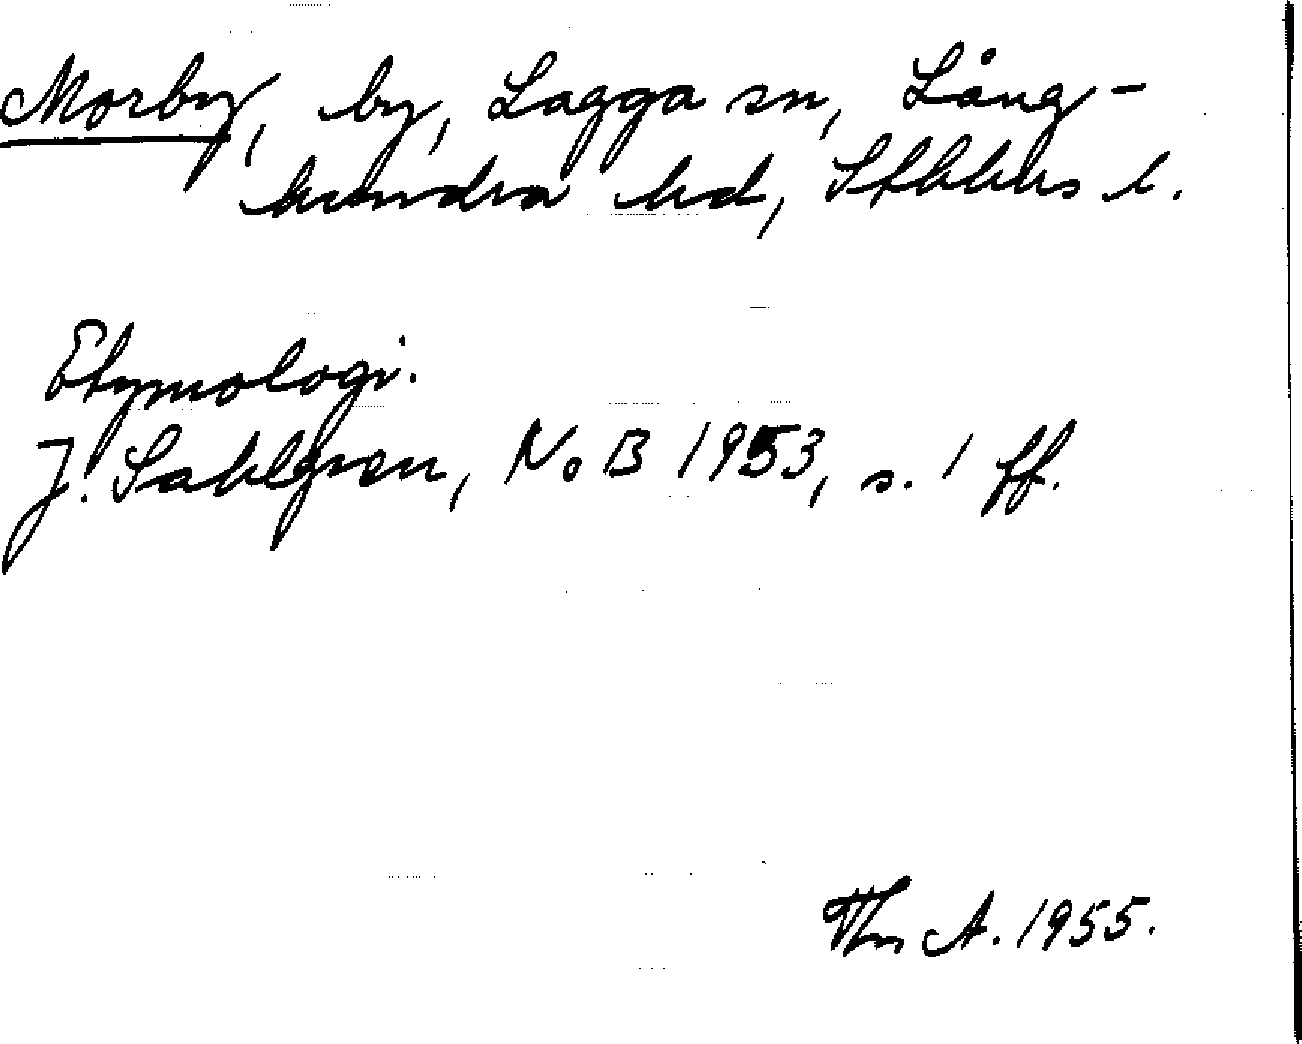 Morby, by, Lagga sn, Lång-
hundra hd, Sthlms l.
Etymologi.
J. Sahlgren, NoB 1953, s. 1 ff.
Ths A. 1955.